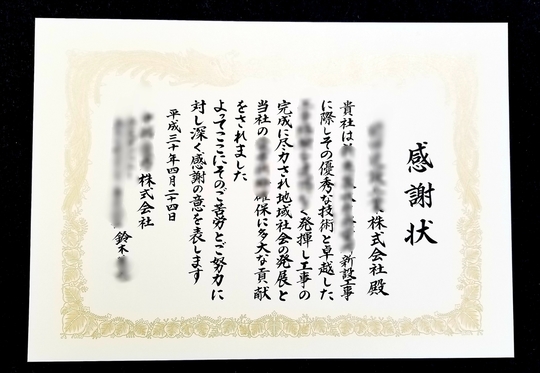 感謝状
株式会社殿
貴社は 新設工事
に際しその優秀な技術と卓越した
く発揮し工事の
完成に尽力され地域社会の発展と
当社の 確保に多大な貢献
をされました
よってここにそのご苦労とご努力に
対し深く感謝の意を表します
平成三十年四月二十四日
株式会社
鈴木